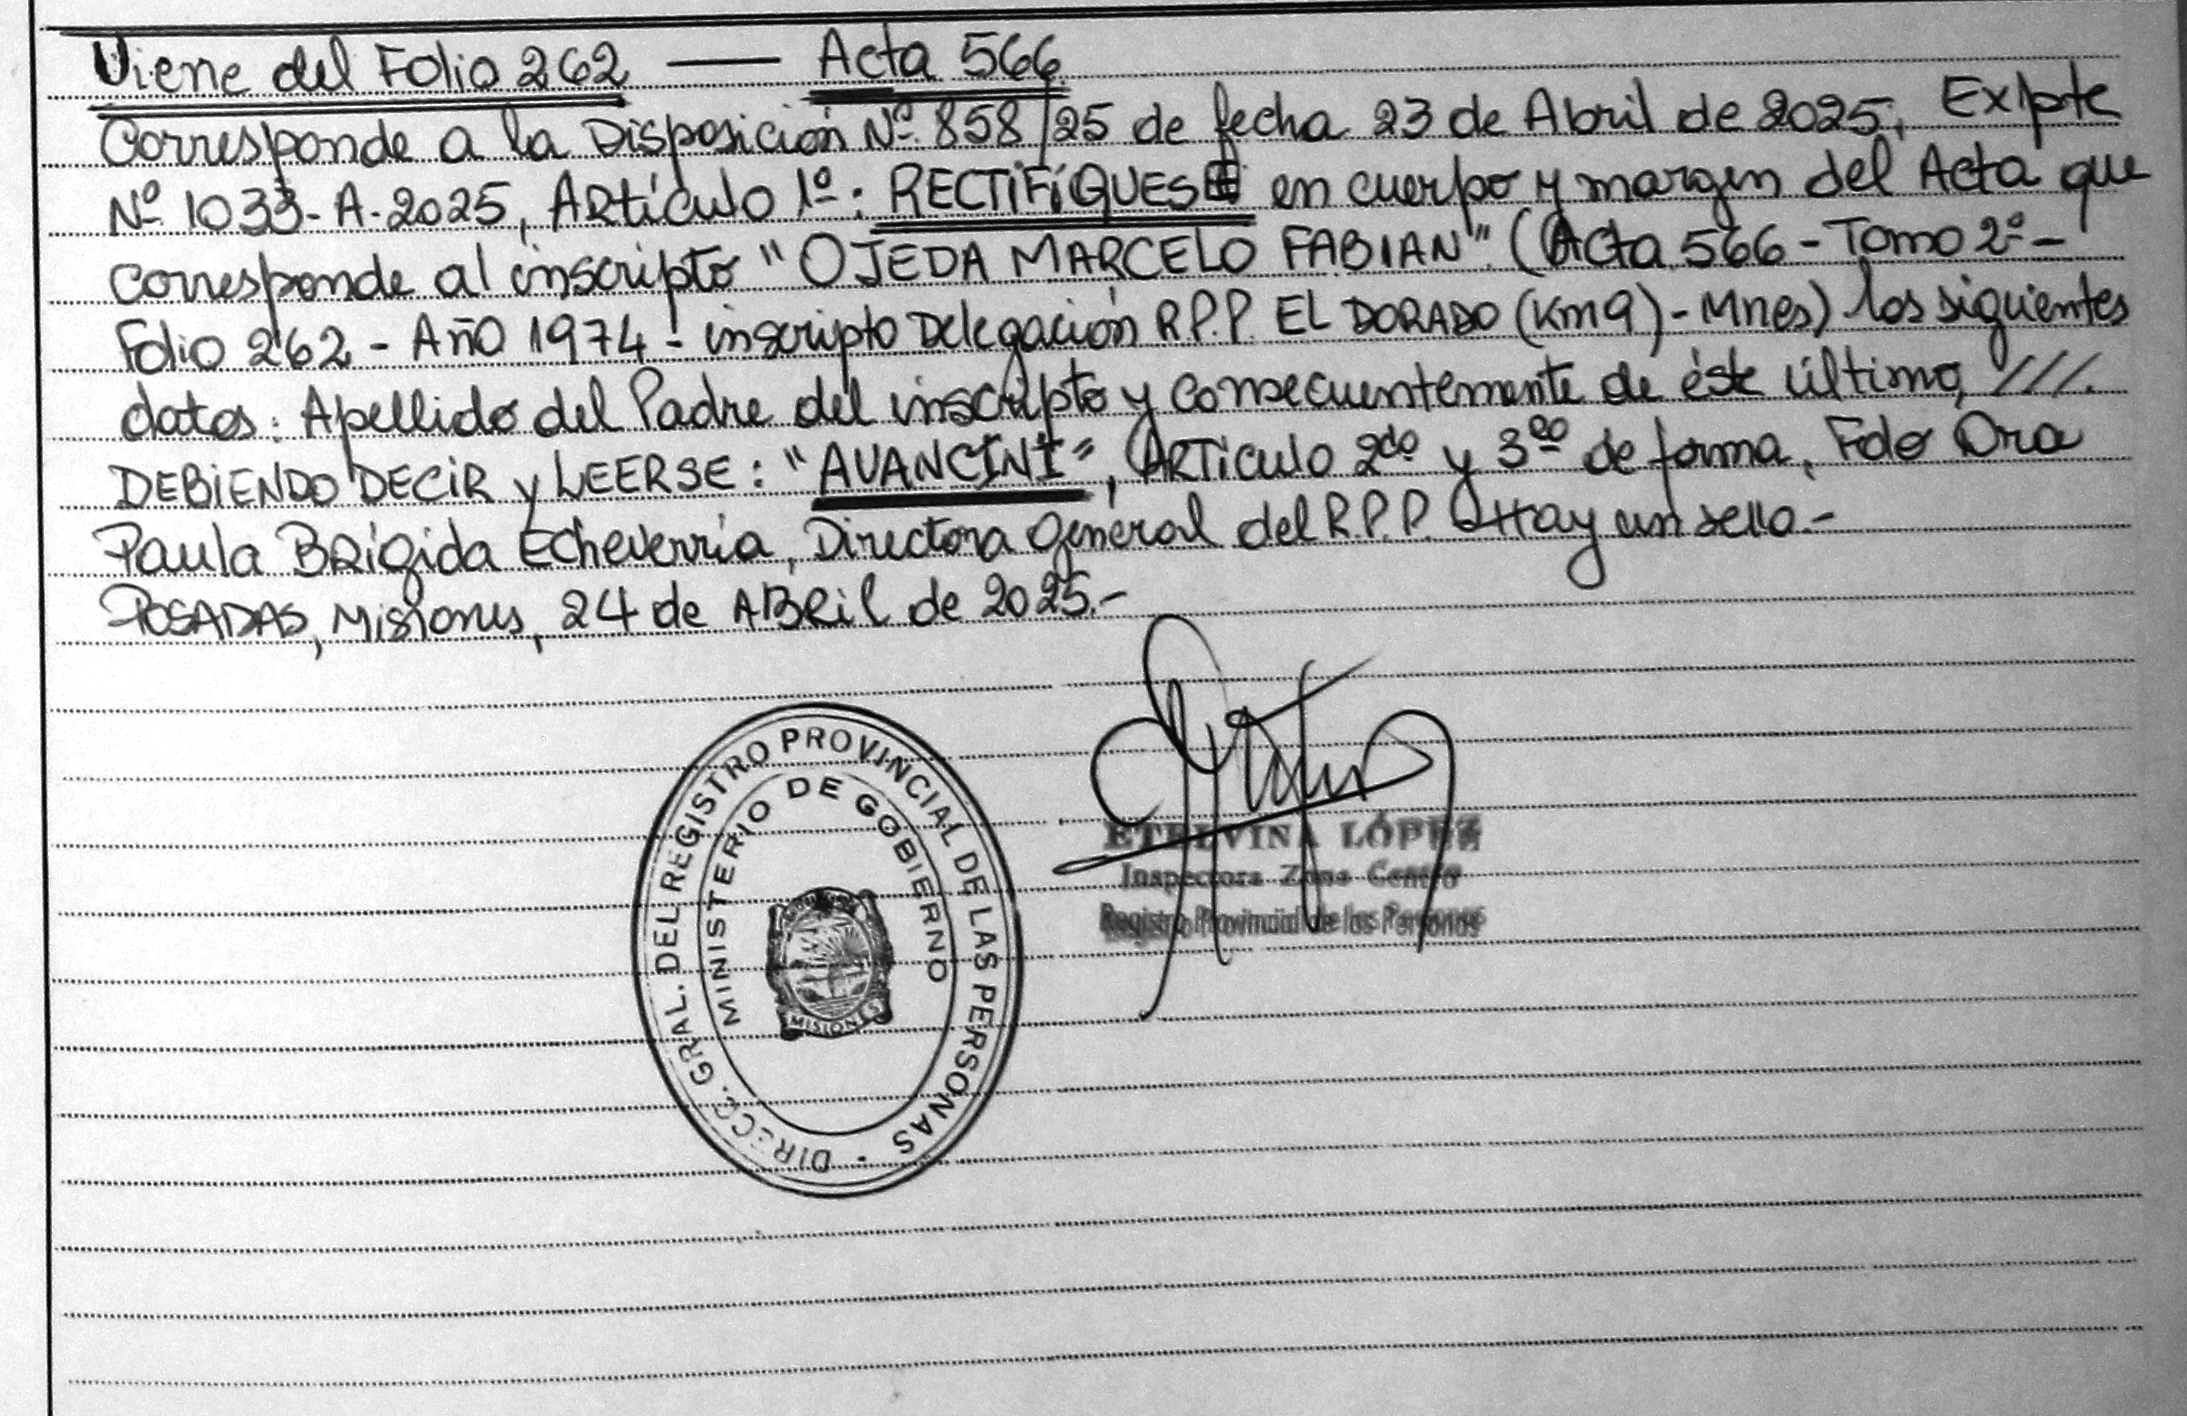 Viene del Folio 262 —— Acta 566
Corresponde a la Disposición Nº 858/25 de fecha 23 de Abril de 2025, Expte
Nº 1033-A-2025, Artículo 1º: RECTIFÍQUESE en cuerpo y margen del Acta que
corresponde al inscripto "OJEDA MARCELO FABIAN" (Acta 566 - Tomo 2º -
Folio 262 - Año 1974 - inscripto Delegación R.P.P. EL DORADO (Km9) - Mnes) los siguientes
datos: Apellido del Padre del inscripto y consecuentemente de éste último, ///.
DEBIENDO DECIR y LEERSE: "AVANCINI", ARTiculo 2do y 3ro de forma, Fdo Dra
Paula BRígida Echeverría, Directora General del R.P.P. Hay un sello.-
POSADAS, Misiones, 24 de ABRil de 2025.-
DIRECC. GRAL. DEL REGISTRO PROVINCIAL DE LAS PERSONAS
MINISTERIO DE GOBIERNO
MISIONES
ETELVINA LÓPEZ
Inspectora Zona Centro
Registro Provincial de las Personas